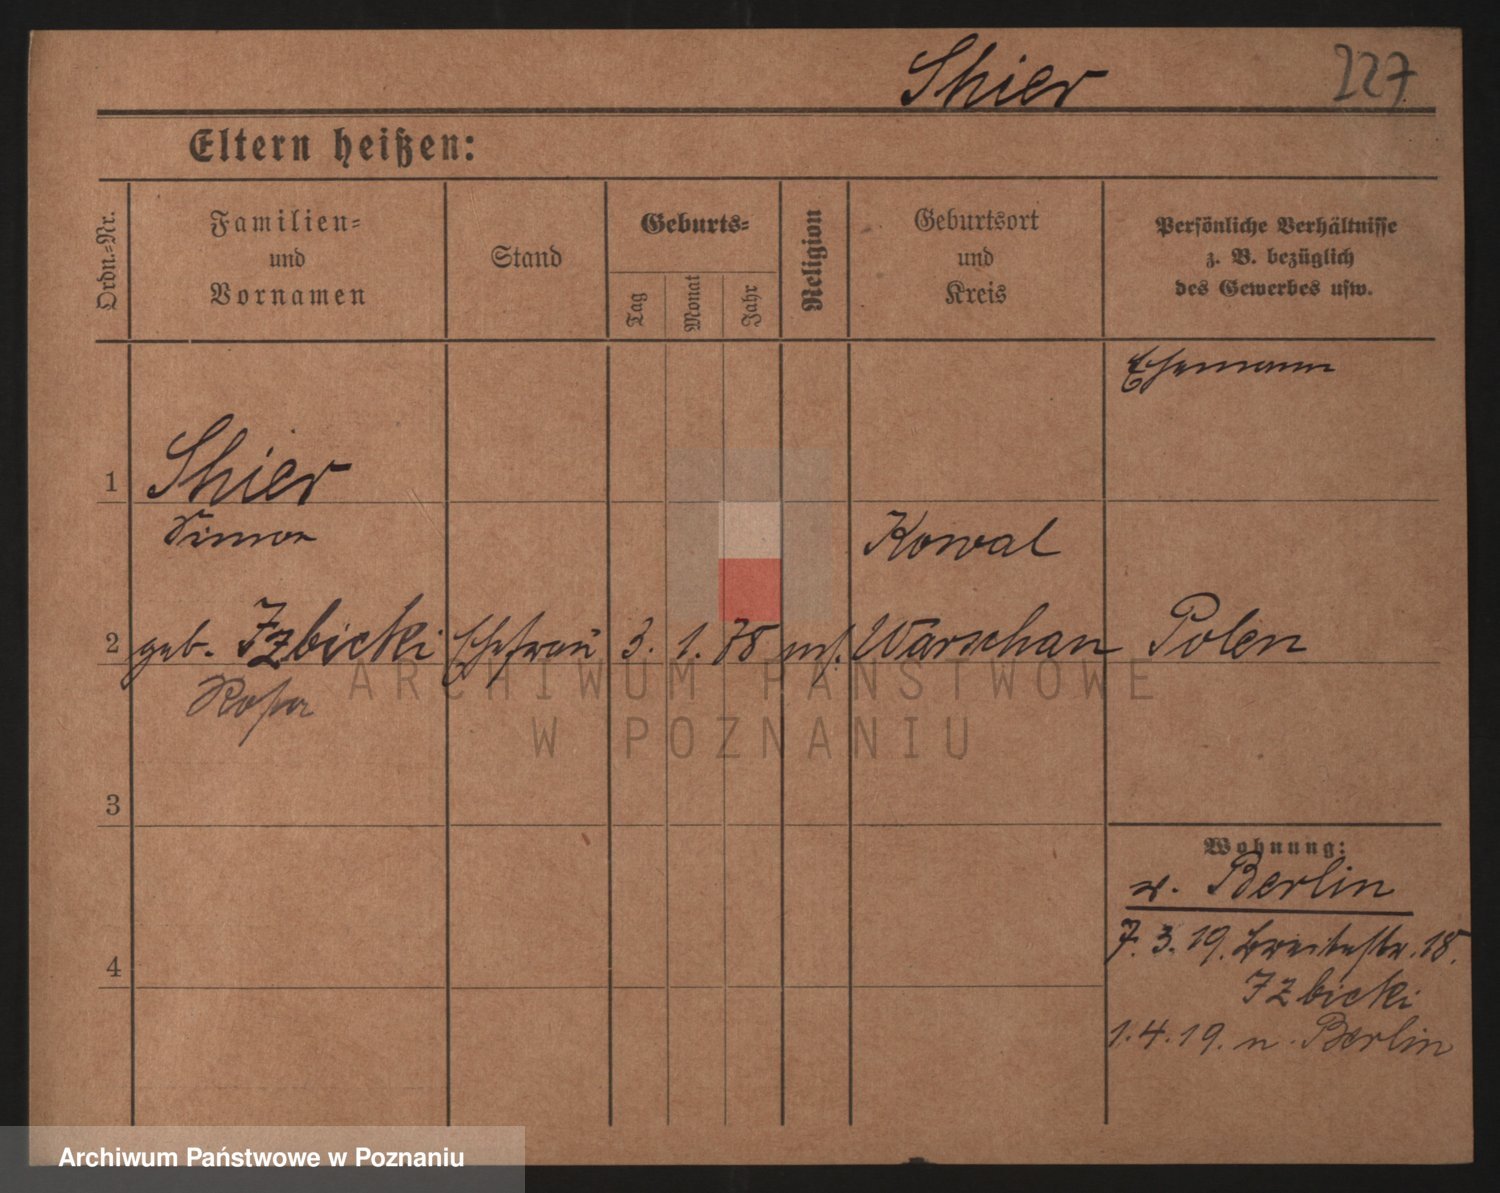 Shier 227
Eltern heißen:
Ordn.=Nr.
Familien=
und
Vornamen
Stand
Geburts=
Tag
Monat
Jahr
Religion
Geburtsort
und
Kreis
Persönliche Verhältnisse
z. B. bezüglich
des Gewerbes usw.
Ehemann
1 Shier
Simon
Kowal
2 geb. Izbicki Ehefrau 3. 1. 78 ms. Warschau Polen
Rosa
3
Wohnung:
v. Berlin
7. 3. 19. Breitestr. 18.
Izbicki
4
1. 4. 19. n. Berlin
ARCHIWUM PAŃSTWOWE
W POZNANIU
Archiwum Państwowe w Poznaniu